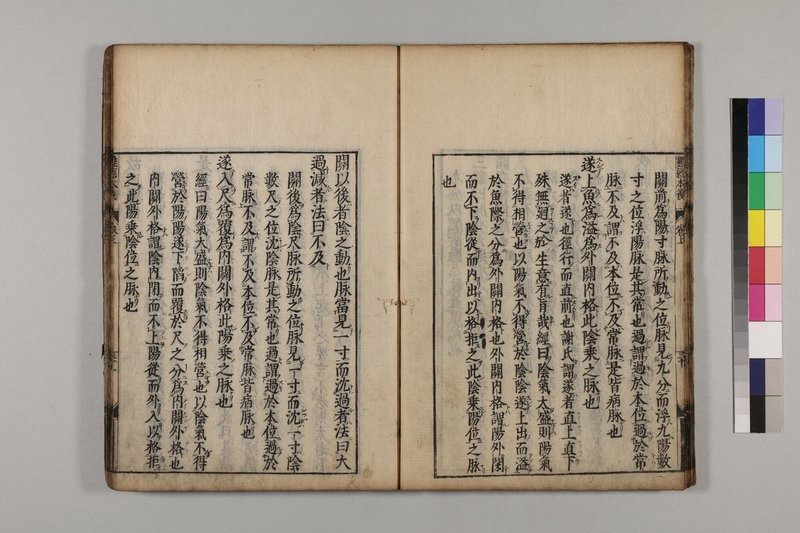 關前爲陽寸脉所動之位脉見九分而浮九陽數
寸之位浮陽脉是其常也過謂過於本位過於常
脉不及謂不及本位不及常脉是皆病脉也
遂上魚爲溢爲外關內格此陰乗之脉也
遂者遂也徑行而直前也謝氏謂遂者直上直下
殊無廻之於生意有旨哉經曰陰氣大盛則陽氣
不得相營也以陽氣不得營於陰陰遂上出而溢
於魚際之分爲外關內格也外關內格謂陽外閉
而不下陰從而內出以格拒之此陰乗陽位之脉
也
關以後者陰之動也脉當見一寸而沈過者法曰大
過減者法曰不及
關後爲陰尺脉所動之位脉見一寸而沈一寸陰
數尺之位沈陰脉是其常也過謂過於本位過於
常脉不及謂不及本位不及常脉皆病脉也
遂入尺爲覆爲內關外格此陽乗之脉也
經曰陽氣大盛則陰氣不得相營也以陰氣不得
營於陽陽遂下陷而覆於尺之分爲內關外格也
內關外格謂陰內閉而不上陽從而外入以格拒
之此陽乗陰位之脉也